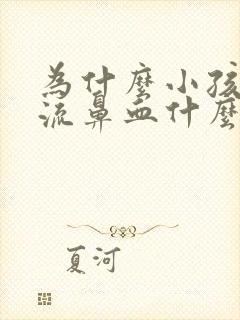 為什麼小孩
流鼻血什麼
夏河